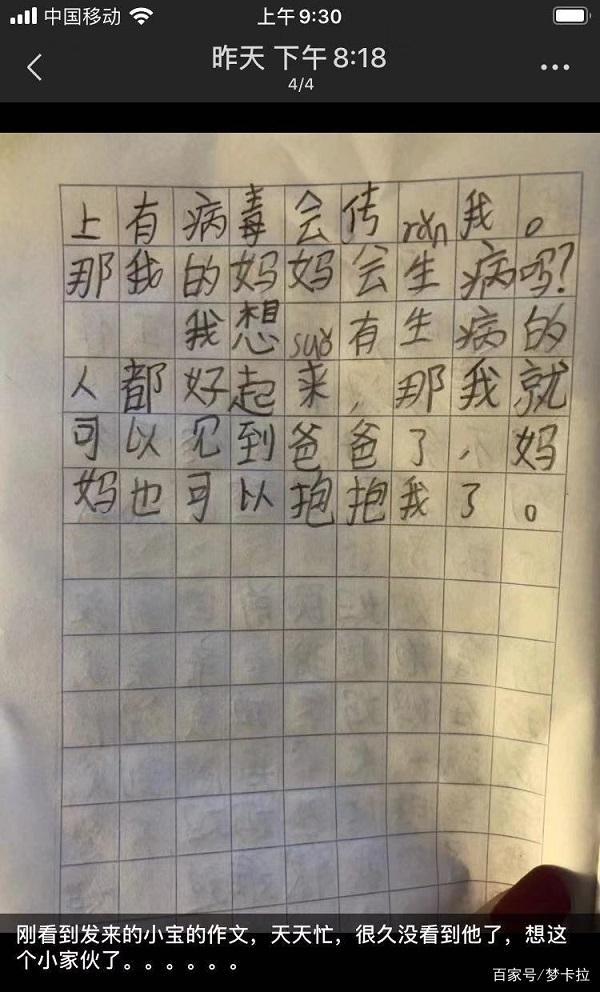 中国移动 上午9:30
昨天 下午8:18
4/4
上有病毒会传rǎn我。
那我的妈妈会生病吗?
我想suǒ有生病的
人都好起来,那我就
可以见到爸爸了,妈
妈也可以抱抱我了。
刚看到发来的小宝的作文，天天忙，很久没看到他了，想这
个小家伙了。。。。。。
百家号/梦卡拉